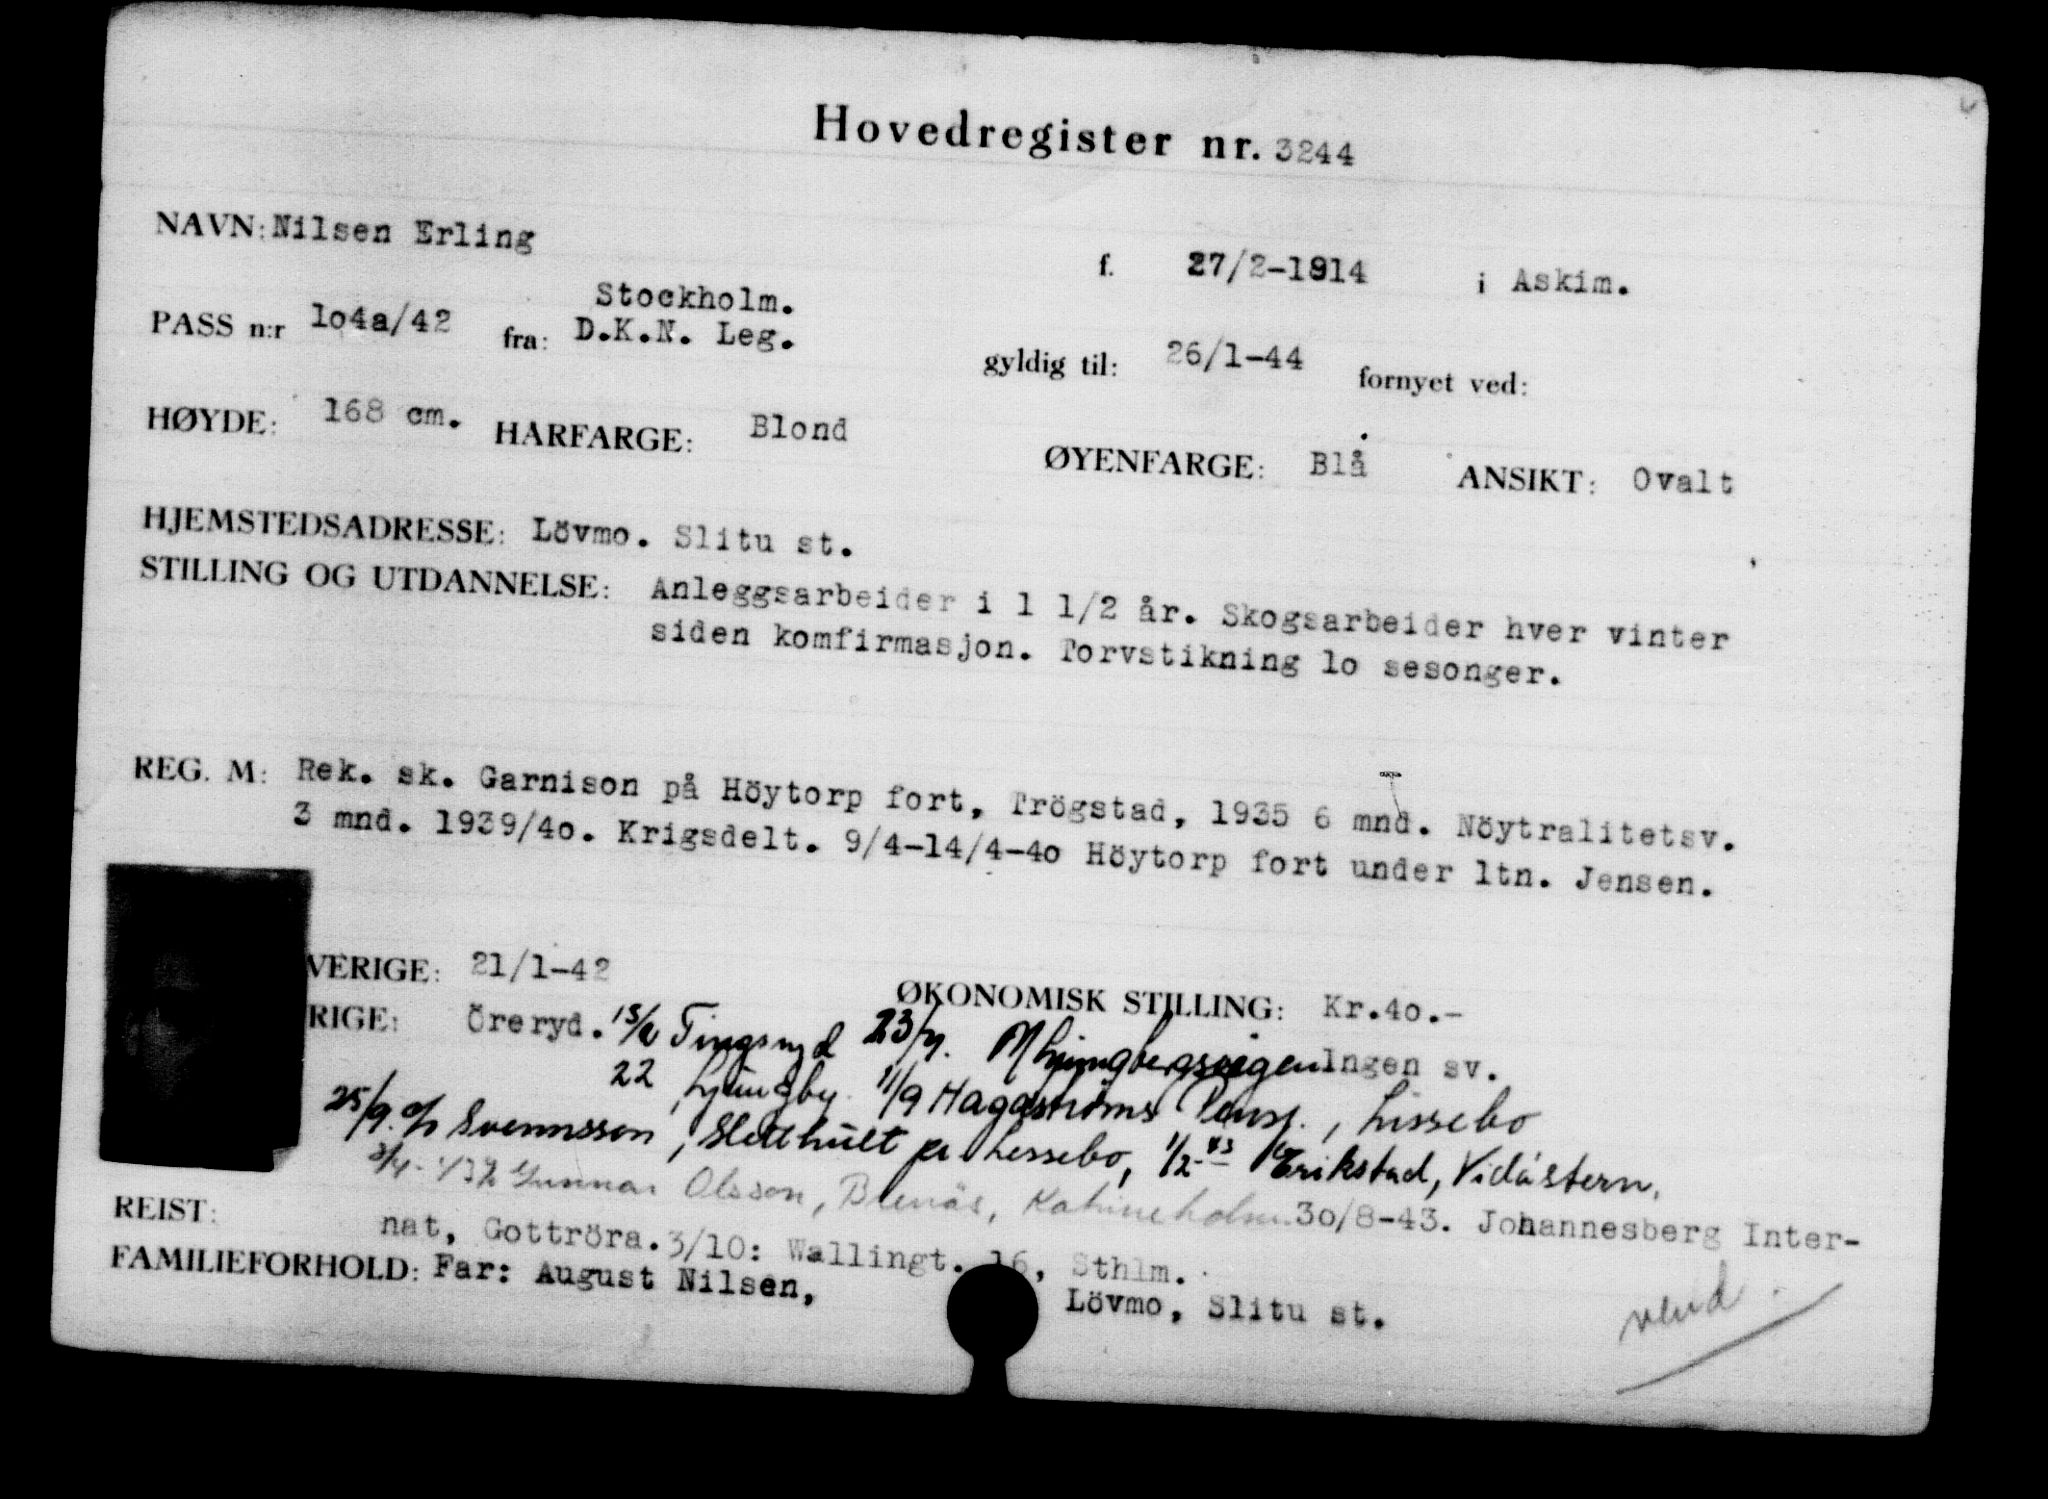 Hovedregister nr. 3244
NAVN: Nilsen Erling f. 27/2-1914 i Askim.
Stockholm.
PASS n:r 1o4a/42 fra: D.K.N. Leg. gyldig til: 26/1-44 fornyet ved:
HØYDE: 168 cm. HARFARGE: Blond ØYENFARGE: Blå ANSIKT: Ovalt
HJEMSTEDSADRESSE: Lövmo. Slitu st.
STILLING OG UTDANNELSE: Anleggsarbeider i 1 1/2 år. Skogsarbeider hver vinter
siden komfirmasjon. Torvstikning 1o sesonger.
REG. M: Rek. sk. Garnison på Höytorp fort, Trögstad, 1935 6 mnd. Nöytralitetsv.
3 mnd. 1939/4o. Krigsdelt. 9/4-14/4-4o Höytorp fort under ltn. Jensen.
VERIGE: 21/1-42 ØKONOMISK STILLING: Kr.4o.-
RIGE: Öreryd. Tingsryd 23/7. Ingen sv.
22, Ljungby. 11/9 Haggströms Pensj., Lissebo
25/9. Svennsson, Sletthult pr Lessebo, 1/2-43 Erikstad, Vidöstern,
Gunnar Olsson, Katrineholm. 3o/8-43. Johannesberg Inter-
REIST: nat, Gottröra. 3/10: Wallingt. 16, Sthlm.
FAMILIEFORHOLD: Far: August Nilsen, Lövmo, Slitu st.
vend.